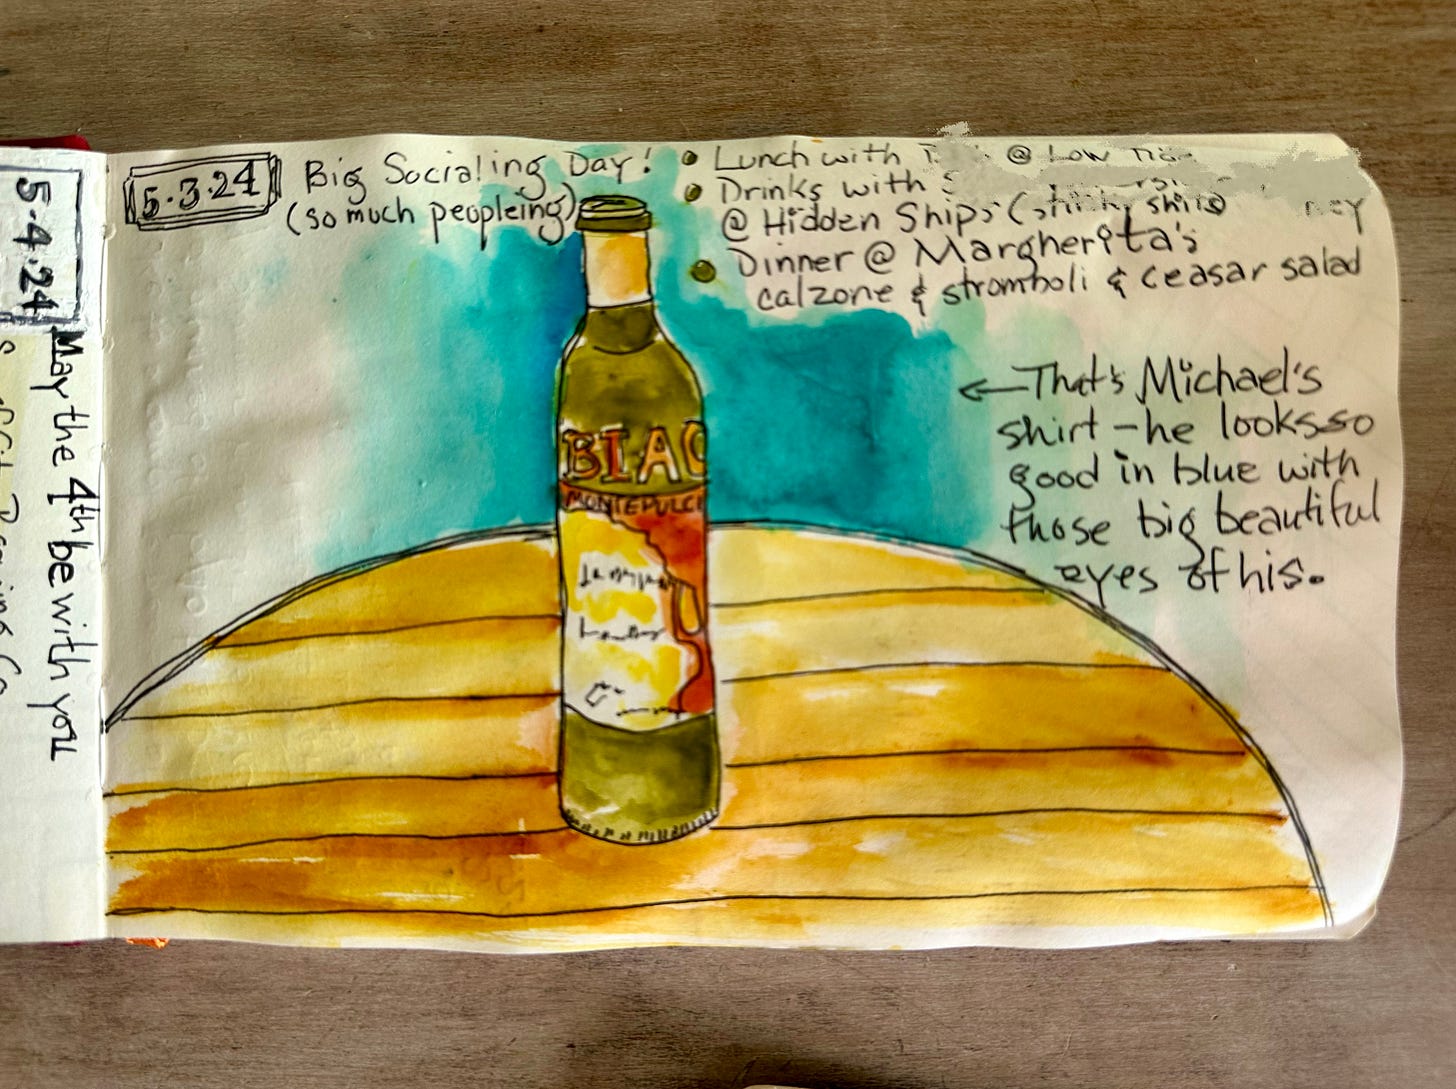 5.3.24
Big Socialing Day!
(so much peopleing)
• Lunch with @ Low
• Drinks with
@ Hidden Ships
• Dinner @ Margherita's
calzone & stromboli & ceasar salad
←That's Michael's
shirt – he looks so
good in blue with
those big beautiful
eyes of his.
BIAC
MONTEPULCI
5.4.24
May the 4th be with you